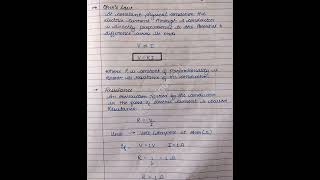 Ohm's Law
At constant physical condition the
electric current through a conductor
is directly proportional to the Potential
difference across its ends
V ∝ I
V = RI
where R is constant of Proportionality is
known as resistance of the conductor
Resistance
An obstruction by the conductor
in the flow of electric current is called
Resistance
R = V/I
Unit → Volt / Ampere or ohm (Ω)
If V = 1V I = 1A
R = 1/1 = 1 Ω
R = 1 Ω